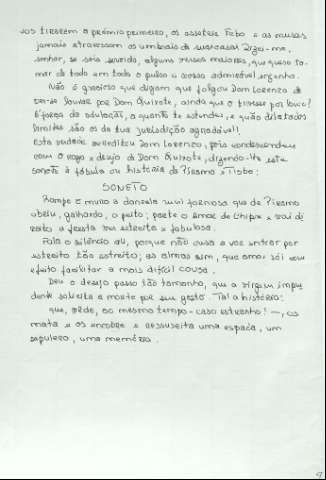 vos tirarem o prêmio primeiro, os asseteie Febo e as musas
jamais atravessem os umbrais de suas casas. Dizei-me,
senhor, se sois servido, alguns versos maiores, que quero to-
mar de todo em todo o pulso a vosso admirável engenho.
Não é gracioso que digam que folgou Dom Lorenzo de
ver-se louvar por Dom Quixote, ainda que o tivesse por louco?
Ó força da adulação, a quanto te estendes, e quão dilatados
limites são os da tua jurisdição agradável!
Esta verdade acreditou Dom Lorenzo, pois condescendeu
com o rogo e desejo de Dom Quixote, dizendo-lhe este
soneto à fábula ou história de Píramo e Tisbe:
SONETO
Rompe o muro a donzela mui formosa que de Píramo
abriu, galhardo, o peito; parte o Amor de Chipre e vai di-
reito a fresta ver estreita e fabulosa.
Fala o silêncio ali, porque não ousa a voz entrar por
estreito tão estreito; as almas sim, que amor sói com
efeito facilitar a mais difícil cousa.
Deu o desejo passo tão tamanho, que a virgem impru
dente solicita a morte por seu gosto. Tal a história:
que, alde, ao mesmo tempo - caso estranho! -, os
mata e os encobre e ressuscita uma espada, um
sepulcro, uma memória.